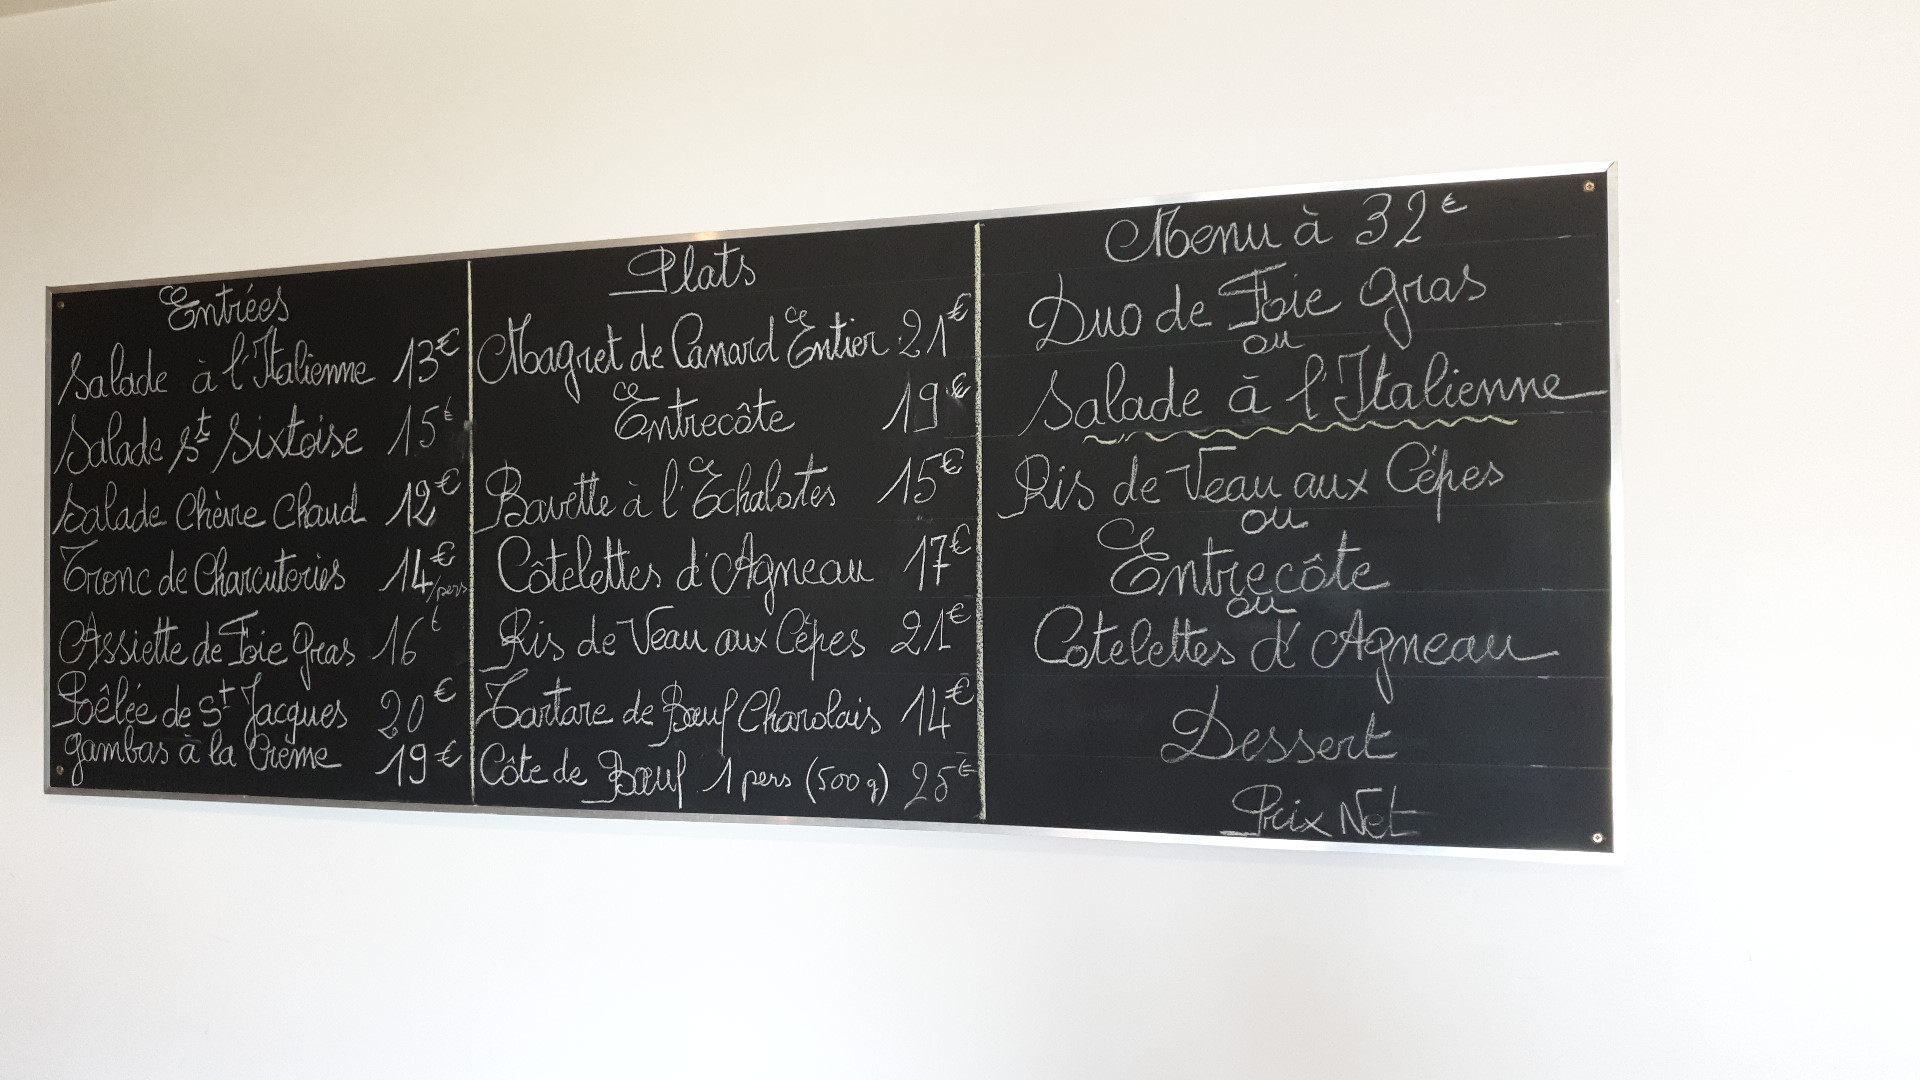 Entrées
Salade à l'Italienne 13€
Salade St Sixtoise 15€
Salade Chèvre Chaud 12€
Tronc de Charcuteries 14€/pers
Assiette de Foie Gras 16€
Poêlée de St Jacques 20€
Gambas à la Crème 19€
Plats
Magret de Canard Entier 21€
Entrecôte 19€
Bavette à l'Echalotes 15€
Côtelettes d'Agneau 17€
Ris de Veau aux Cépes 21€
Tartare de Bœuf Charolais 14€
Côte de Bœuf 1 pers (500g) 25€
Menu à 32€
Duo de Foie Gras
ou
Salade à l'Italienne
Ris de Veau aux Cépes
ou
Entrecôte
ou
Cotelettes d'Agneau
Dessert
Prix Net